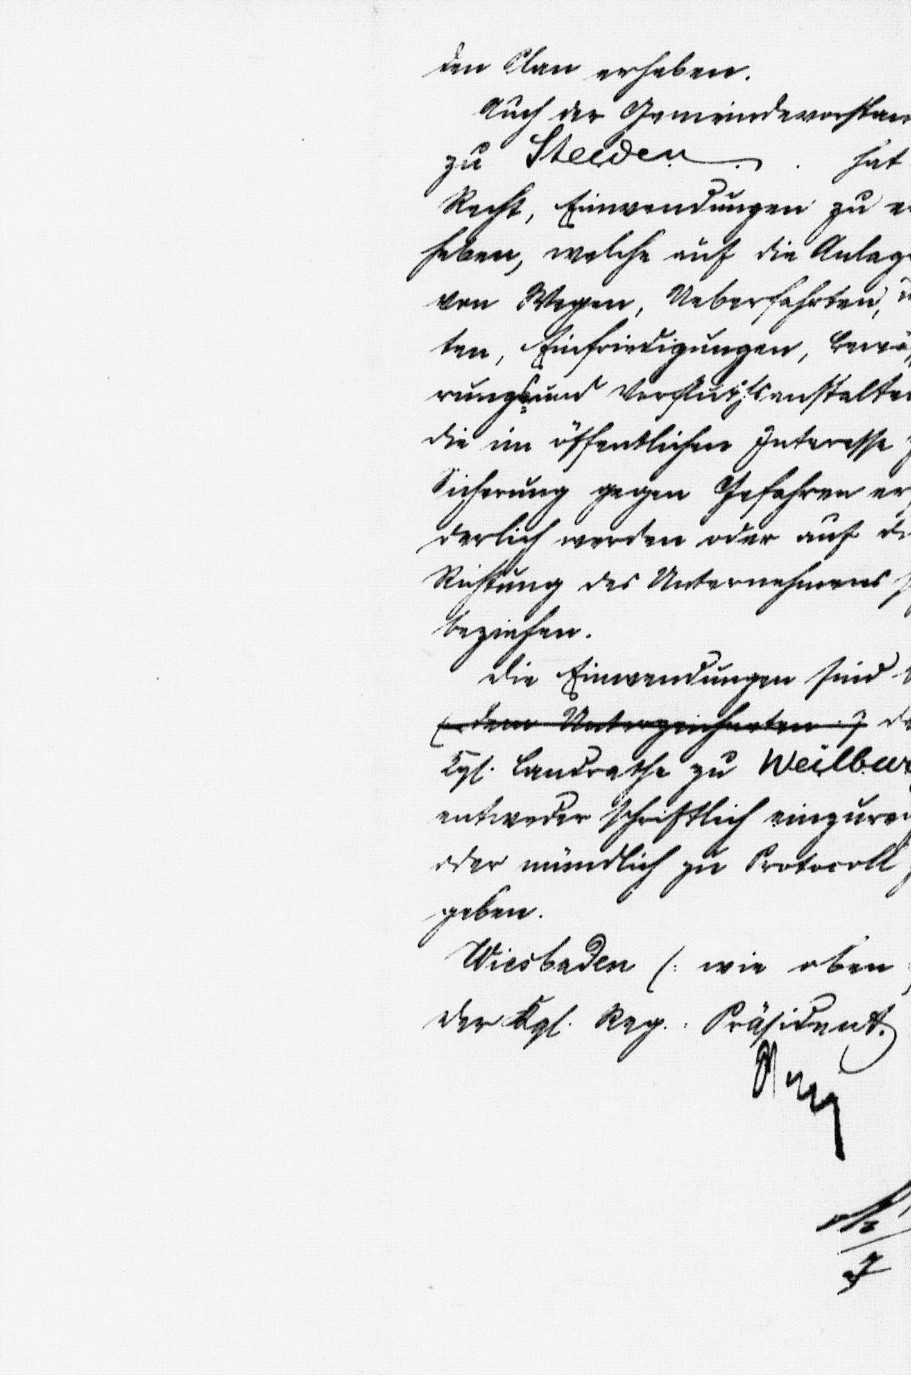 den Plan erheben.
Auch der Gemeindevorstan
zu Steeden hat
Recht, Einwendungen zu er
heben, welche auf die Anlage
von Wegen, Ueberfahrten,
ten, Einfriedigungen, Bewäs
rungs und Vorfluthsanstalten
die im öffentlichen Interesse z
Sicherung gegen Gefahren erf
derlich werden oder auf die
Richtung des Unternehmens s
beziehen.
Die Einwendungen sind b
(: dem Unterzeichneten :) de
Kgl. Landrathe zu Weilbur
entweder schriftlich einzurei
oder mündlich zu Protocoll z
geben.
Wiesbaden (: wie oben
Der Kgl. Reg. Präsident.